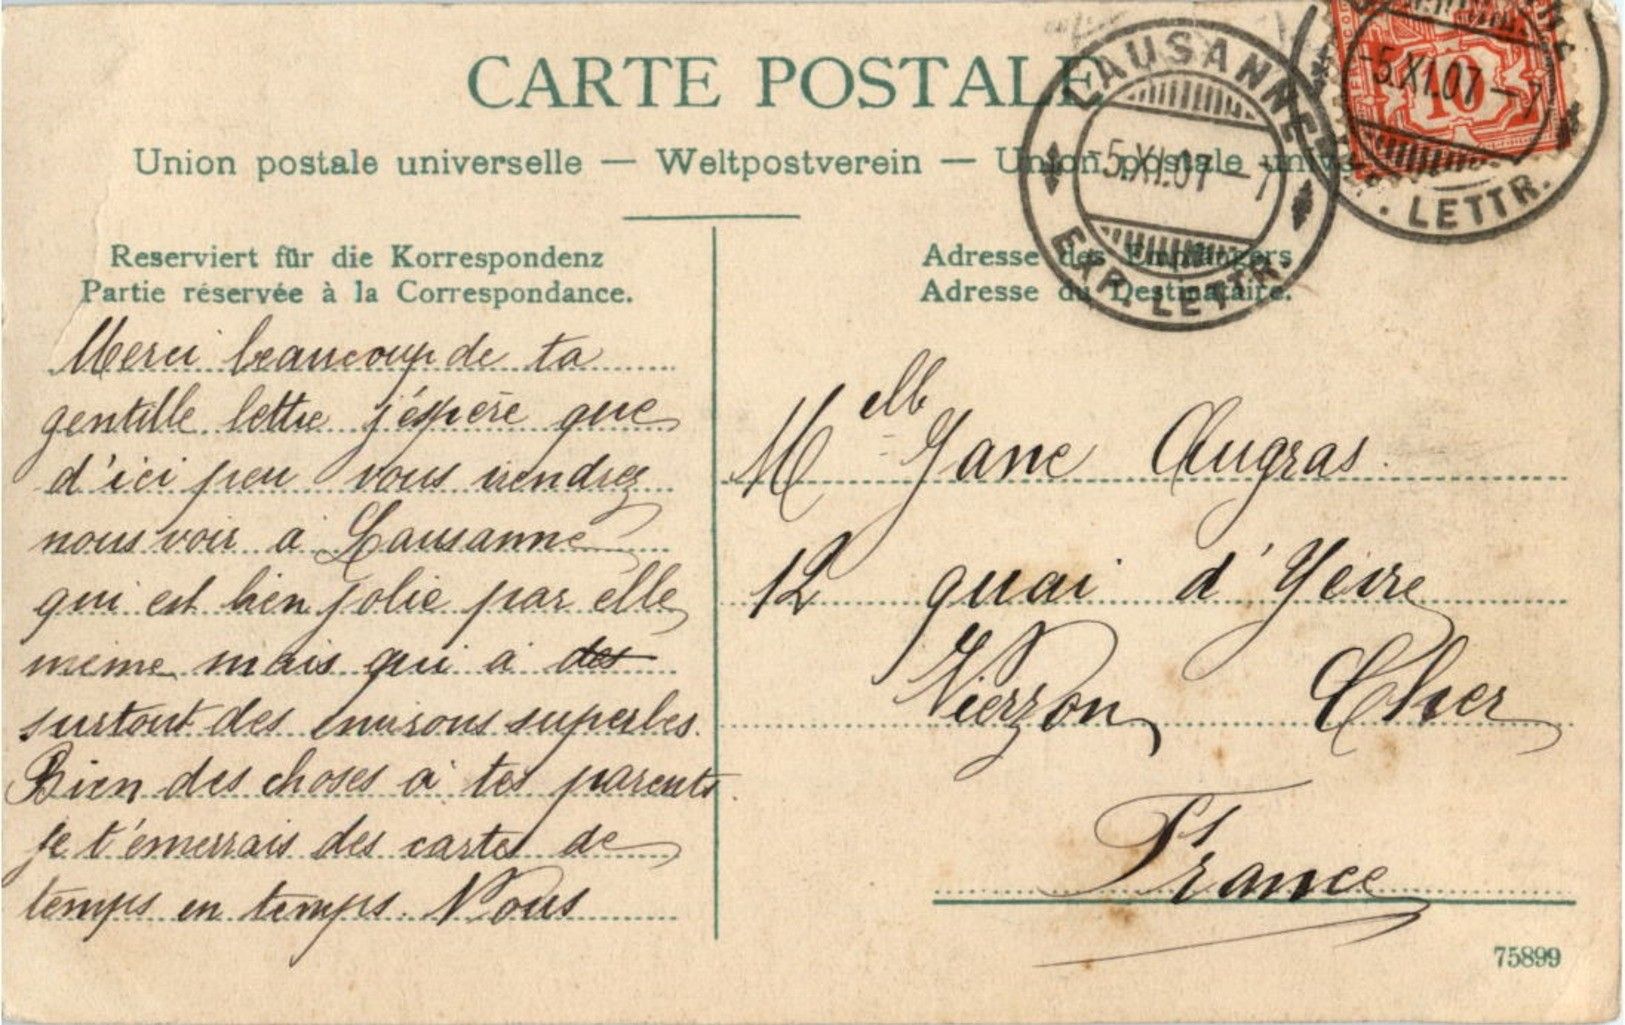 CARTE POSTALE
Union postale universelle — Weltpostverein — Union postale unive
Reserviert für die Korrespondenz
Partie réservée à la Correspondance.
Adresse des Empfängers
Adresse du Destinataire.
LAUSANNE
-5.XI.07-7
EXP. LETTR.
10
-5.XI.07-7
. LETTR.
Merci beaucoup de ta
gentille lettre j'éspère que
d'ici peu vous viendrez
nous voir a Lausanne
qui est bien jolie par elle
meme mais qui a des
surtout des environs superbes.
Bien des choses a tes parents.
je t'enverrais des cartes de
temps en temps. Nous
Melle Jane Augras.
12 quai d'Yèvre
Vierzon Cher
France
75899